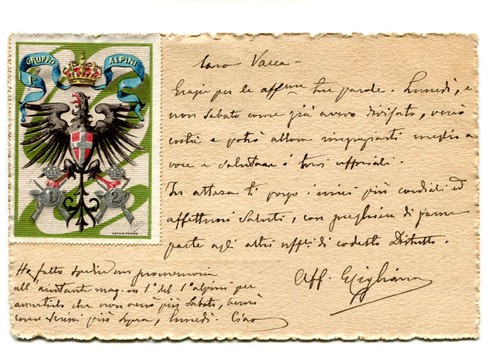 1° GRUPPO ALPINI
1 2
Caro Vacca -
Grazie per le affettuose tue parole. Lunedì, e
non Sabato come già avevo divisato, verrò
costì e potrò allora ringraziarti meglio a
voce e salutare i tuoi ufficiali.
In attesa ti porgo i miei più cordiali ed
affettuosi saluti, con preghiera di farne
parte agli altri uffli di codesto Distretto.
Aff.
Ho fatto spedire un promemoria
all'aiutante mag. in 1° del 1° alpini per
avvertirlo che non verrò più Sabato, bensì
come scrissi più sopra, Lunedì. Ciao